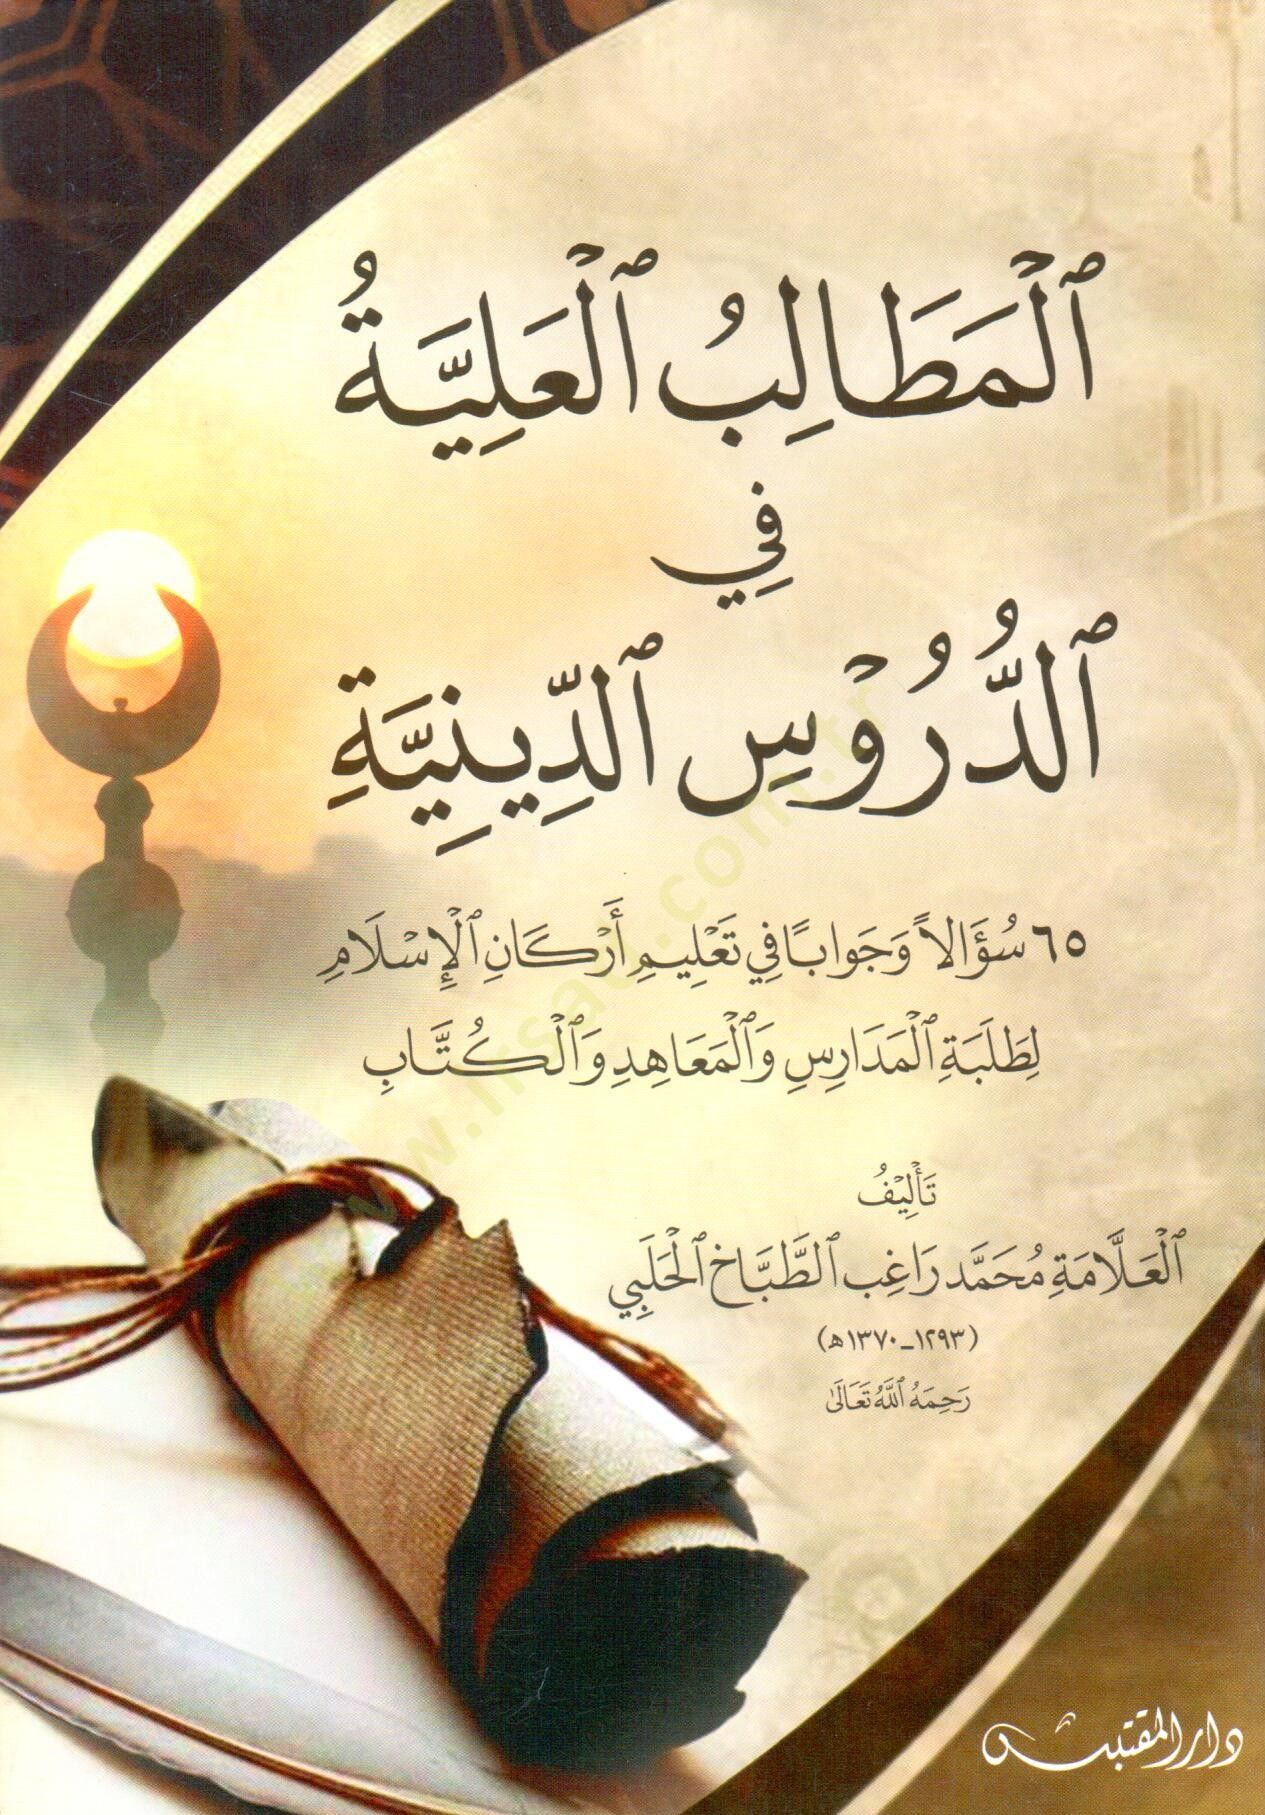 ٱلْمَطَالِبُ ٱلْعَلِيَّةُ
فِي
ٱلدُّرُوْسِ ٱلدِّينِيَّةِ
٦٥ سُؤَالاً وَجَوَابًا فِي تَعْلِيمِ أَرْكَانِ ٱلْإِسْلَامِ
لِطَلَبَةِ ٱلْمَدَارِسِ وَٱلْمَعَاهِدِ وَٱلْكُتَّابِ
تَأْلِيْفُ
ٱلْعَلَّامَةِ مُحَمَّد رَاغِب ٱلطَّبَّاخ ٱلْحَلَبِي
(١٢٩٣-١٣٧٠هـ)
رَحِمَهُ ٱللَّهُ تَعَالَىٰ
دار المقتبس